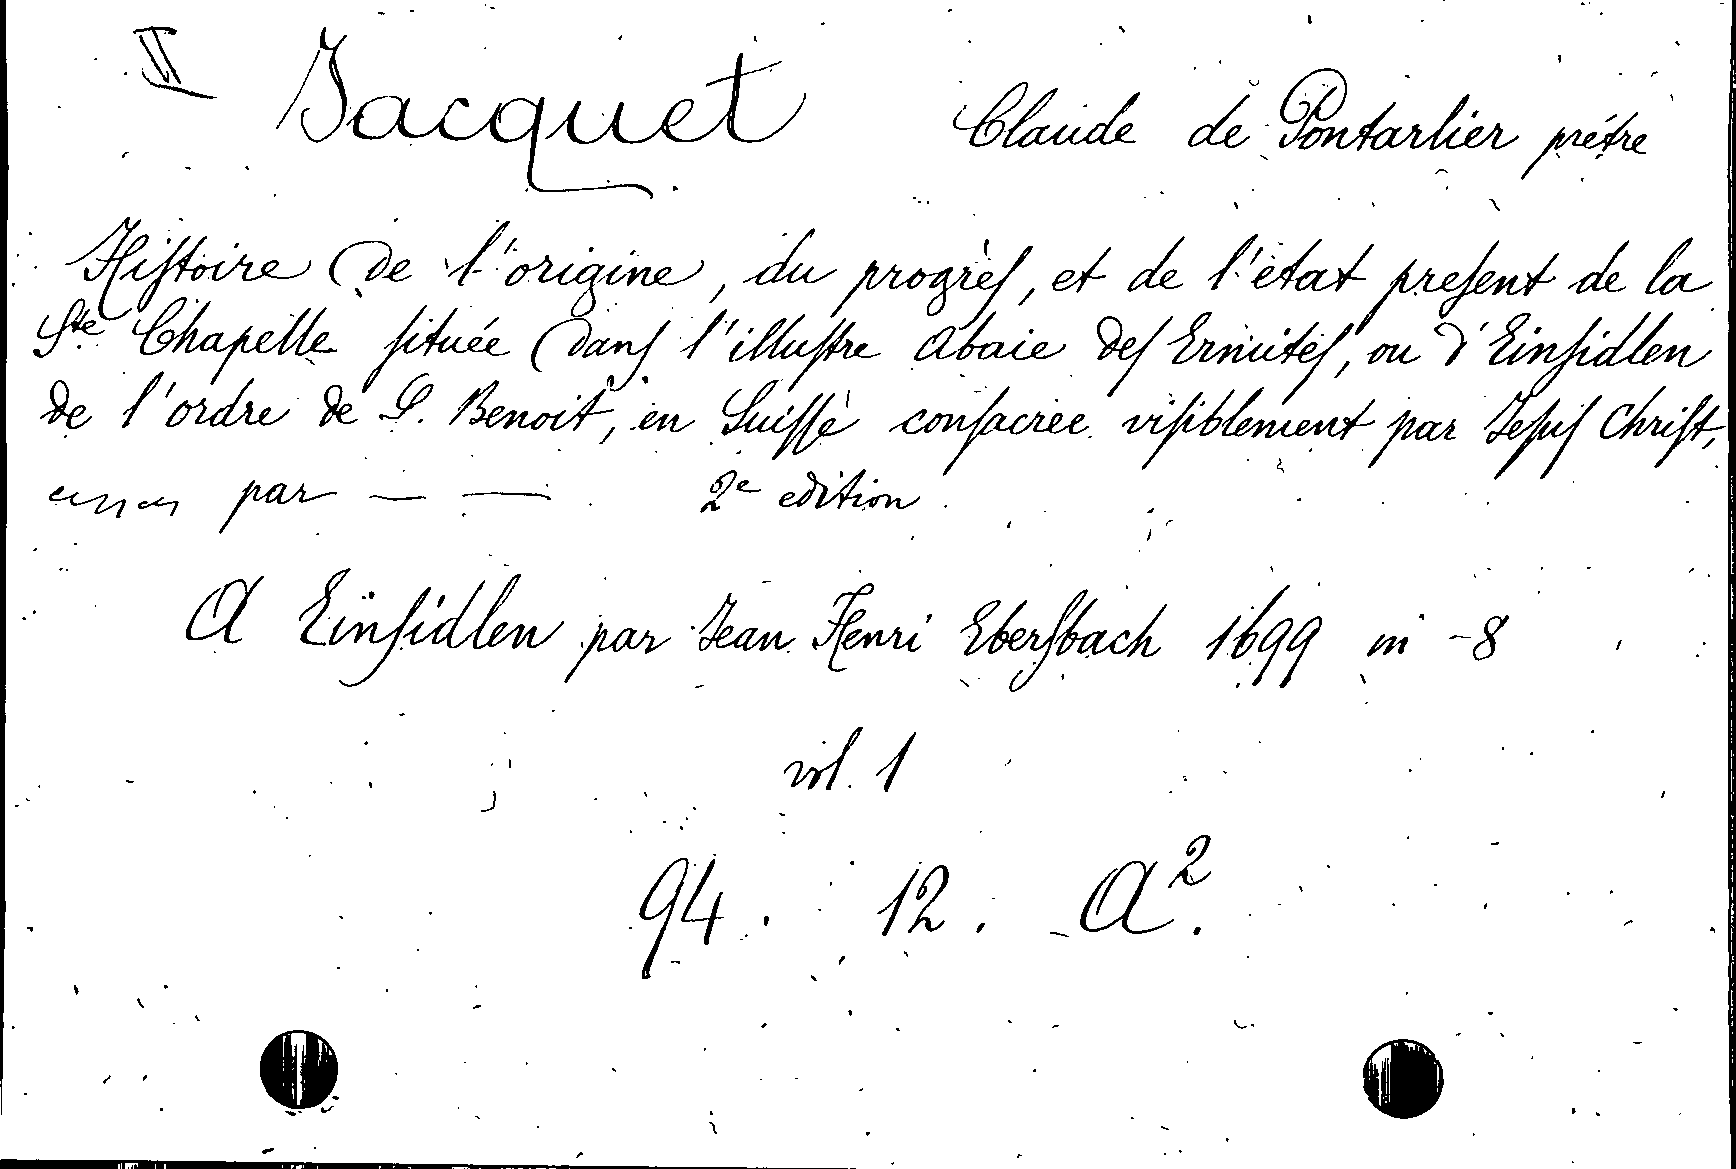 II Jacquet Claude de Pontarlier prétre
Hiſtoire de l'origine, du progrèſ, et de l'état preſent de la
Ste Chapelle ſituée danſ l'illuſtre Abaie deſ Ermiteſ, ou d'Einſidlen
de l'ordre de S. Benoit, en Suiſſe conſacrée viſiblement par Jeſuſ Chriſt,
par — — 2e edition
A Einſidlen par Jean Henri Eberſbach 1699 in -8
vol. 1
94. 12. A2.